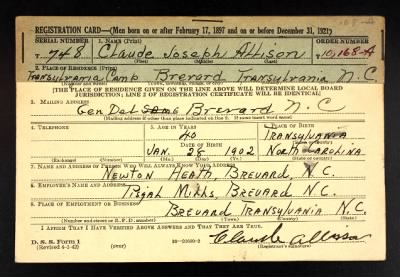 REGISTRATION CARD—(Men born on or after February 17, 1897 and on or before December 31, 1921)
SERIAL NUMBER 1. NAME (Print) ORDER NUMBER
T 748 Claude Joseph Allison 10,168-A
(First) (Middle) (Last)
2. PLACE OF RESIDENCE (Print)
Transylvania Camp Brevard Transylvania N.C
[THE PLACE OF RESIDENCE GIVEN ON THE LINE ABOVE WILL DETERMINE LOCAL BOARD
JURISDICTION; LINE 2 OF REGISTRATION CERTIFICATE WILL BE IDENTICAL]
3. MAILING ADDRESS
Gen Del Same Brevard N.C
[Mailing address if other than place indicated on line 2. If same insert word same]
4. TELEPHONE 5. AGE IN YEARS 6. PLACE OF BIRTH
40 Transylvania
DATE OF BIRTH (Town or county)
Jan. 28 1902 North Carolina
(Exchange) (Number) (Mo.) (Day) (Yr.) (State or country)
7. NAME AND ADDRESS OF PERSON WHO WILL ALWAYS KNOW YOUR ADDRESS
Newton Heath, Brevard, N.C.
8. EMPLOYER'S NAME AND ADDRESS
Mills, Brevard N.C.
9. PLACE OF EMPLOYMENT OR BUSINESS
Brevard Transylvania N.C.
(Number and street or R. F. D. number) (Town) (County) (State)
I AFFIRM THAT I HAVE VERIFIED ABOVE ANSWERS AND THAT THEY ARE TRUE.
D. S. S. Form 1
(Revised 4-1-42) (over) Claude Allison
(Registrant's signature)